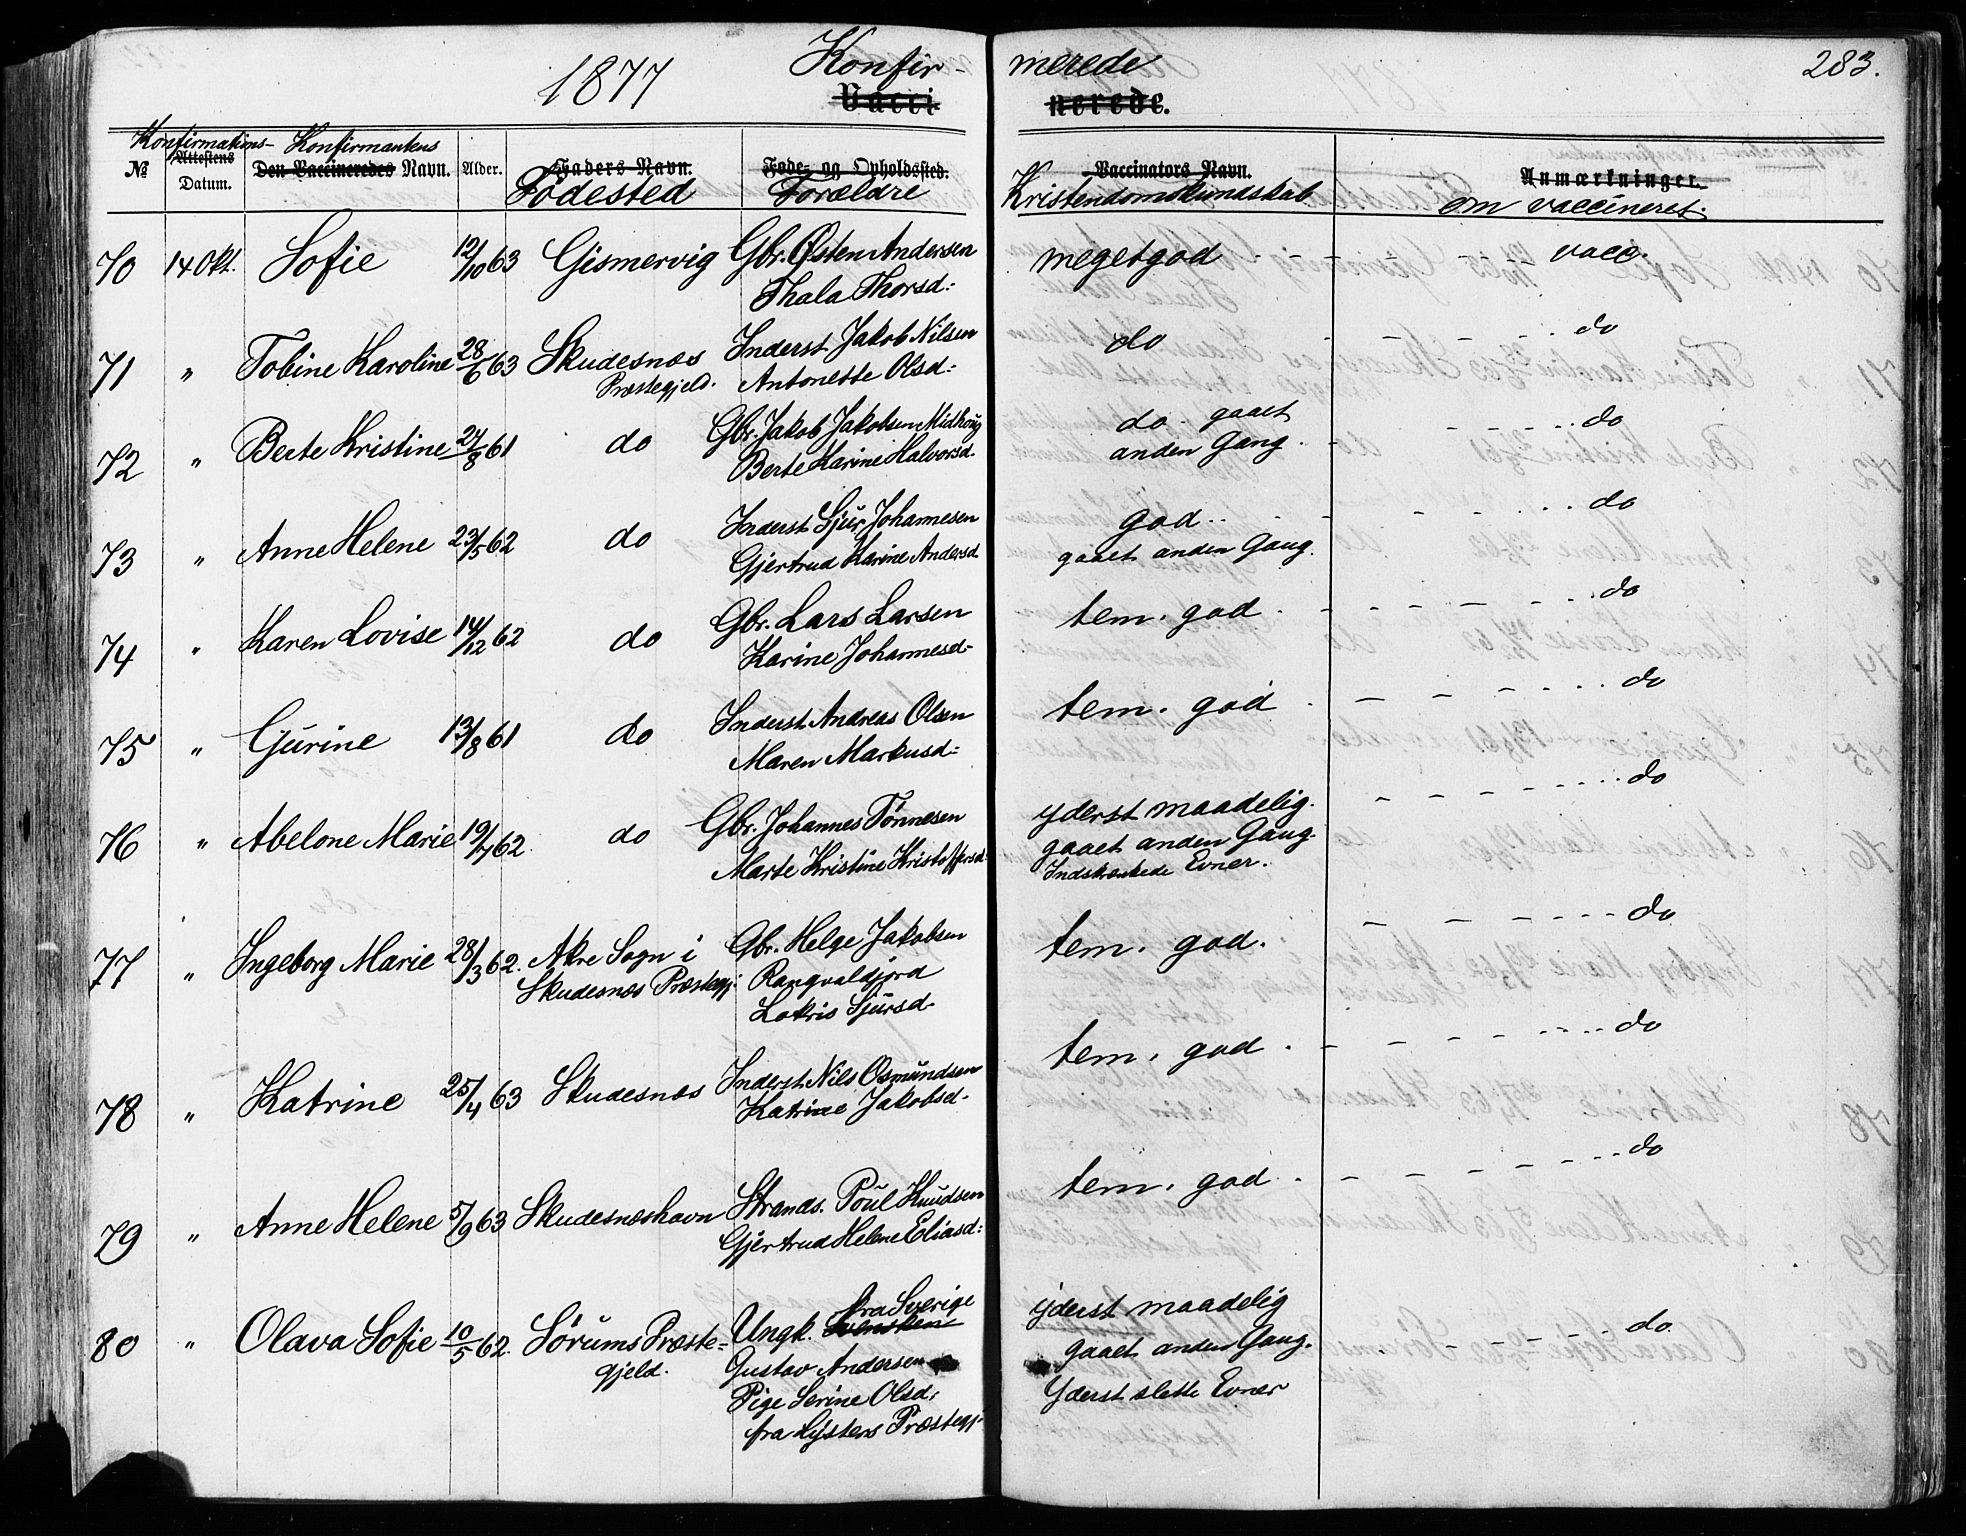 1877 Konfir- merede 283.
Vacci- nerede.
Konfirmations- Konfirmantens
No Attestens Datum. Den Vaccineredes Navn. Alder. Faders Navn. Føde- og Opholdssted. Vaccinators Navn. Anmærkninger.
Fødested Forældre Kristendomskundskab om vaccineret.
70 14 Okt. Sofie 12/10 63 Gismervig Gbr. Østen Andersen meget god - - - vacc.
Thala Thorsd:
71 " Tobine Karoline 28/6 63 Skudesnæs Inderst Jakob Nilsen do - - - do
Præstegjeld. Antonette Olsd:
72 " Berte Kristine 27/8 61 do Gbr. Jakob Jakobsen Midhoug do. gaaet - - - do
Berte Karine Halvorsd. anden Gang.
73 " Anne Helene 23/5 62 do Inderst Sjur Johannesen god - - - do
Gjertrud Karine Andersd. gaaet anden Gang.
74 " Karen Lovise 14/12 62 do Gbr. Lars Larsen tem. god - - - do
Karine Johannesd.
75 " Gurine 13/8 61 do Inderst Andreas Olsen tem. god - - - do
Maren Markusd:
76 " Abelone Marie 19/7 62. do Gbr. Johannes Tønnesen yderst maadelig. - - - do
Marte Kristine Kristoffersd: gaaet anden Gang.
Indskrænkede Evner.
77 " Ingeborg Marie 28/3 62. Akre Sogn i Gbr. Helge Jakobsen tem. god. - - - do
Skudesnæs Præstegj. Rangvaldjord
Lakris Sjursd.
78 " Katrine 25/4 63 Skudesnæs Inderst Nils Osmundsen tem. god - - - do
Katrine Jakobsd.
79 " Anne Helene 5/9 63 Skudesnæshavn Strands. Poul Knudsen tem. god - - - do
Gjertrud Helene Eliasd:
80 " Olava Sofie 10/5 62. Sørums Præste= Ungk. Svensken fra Sverige yderst maadelig - - - do.
gjeld. Gustav Andersen gaaet anden Gang.
Pige Serine Olsd. Yderst slette Evner
fra Lysters Præstegj.